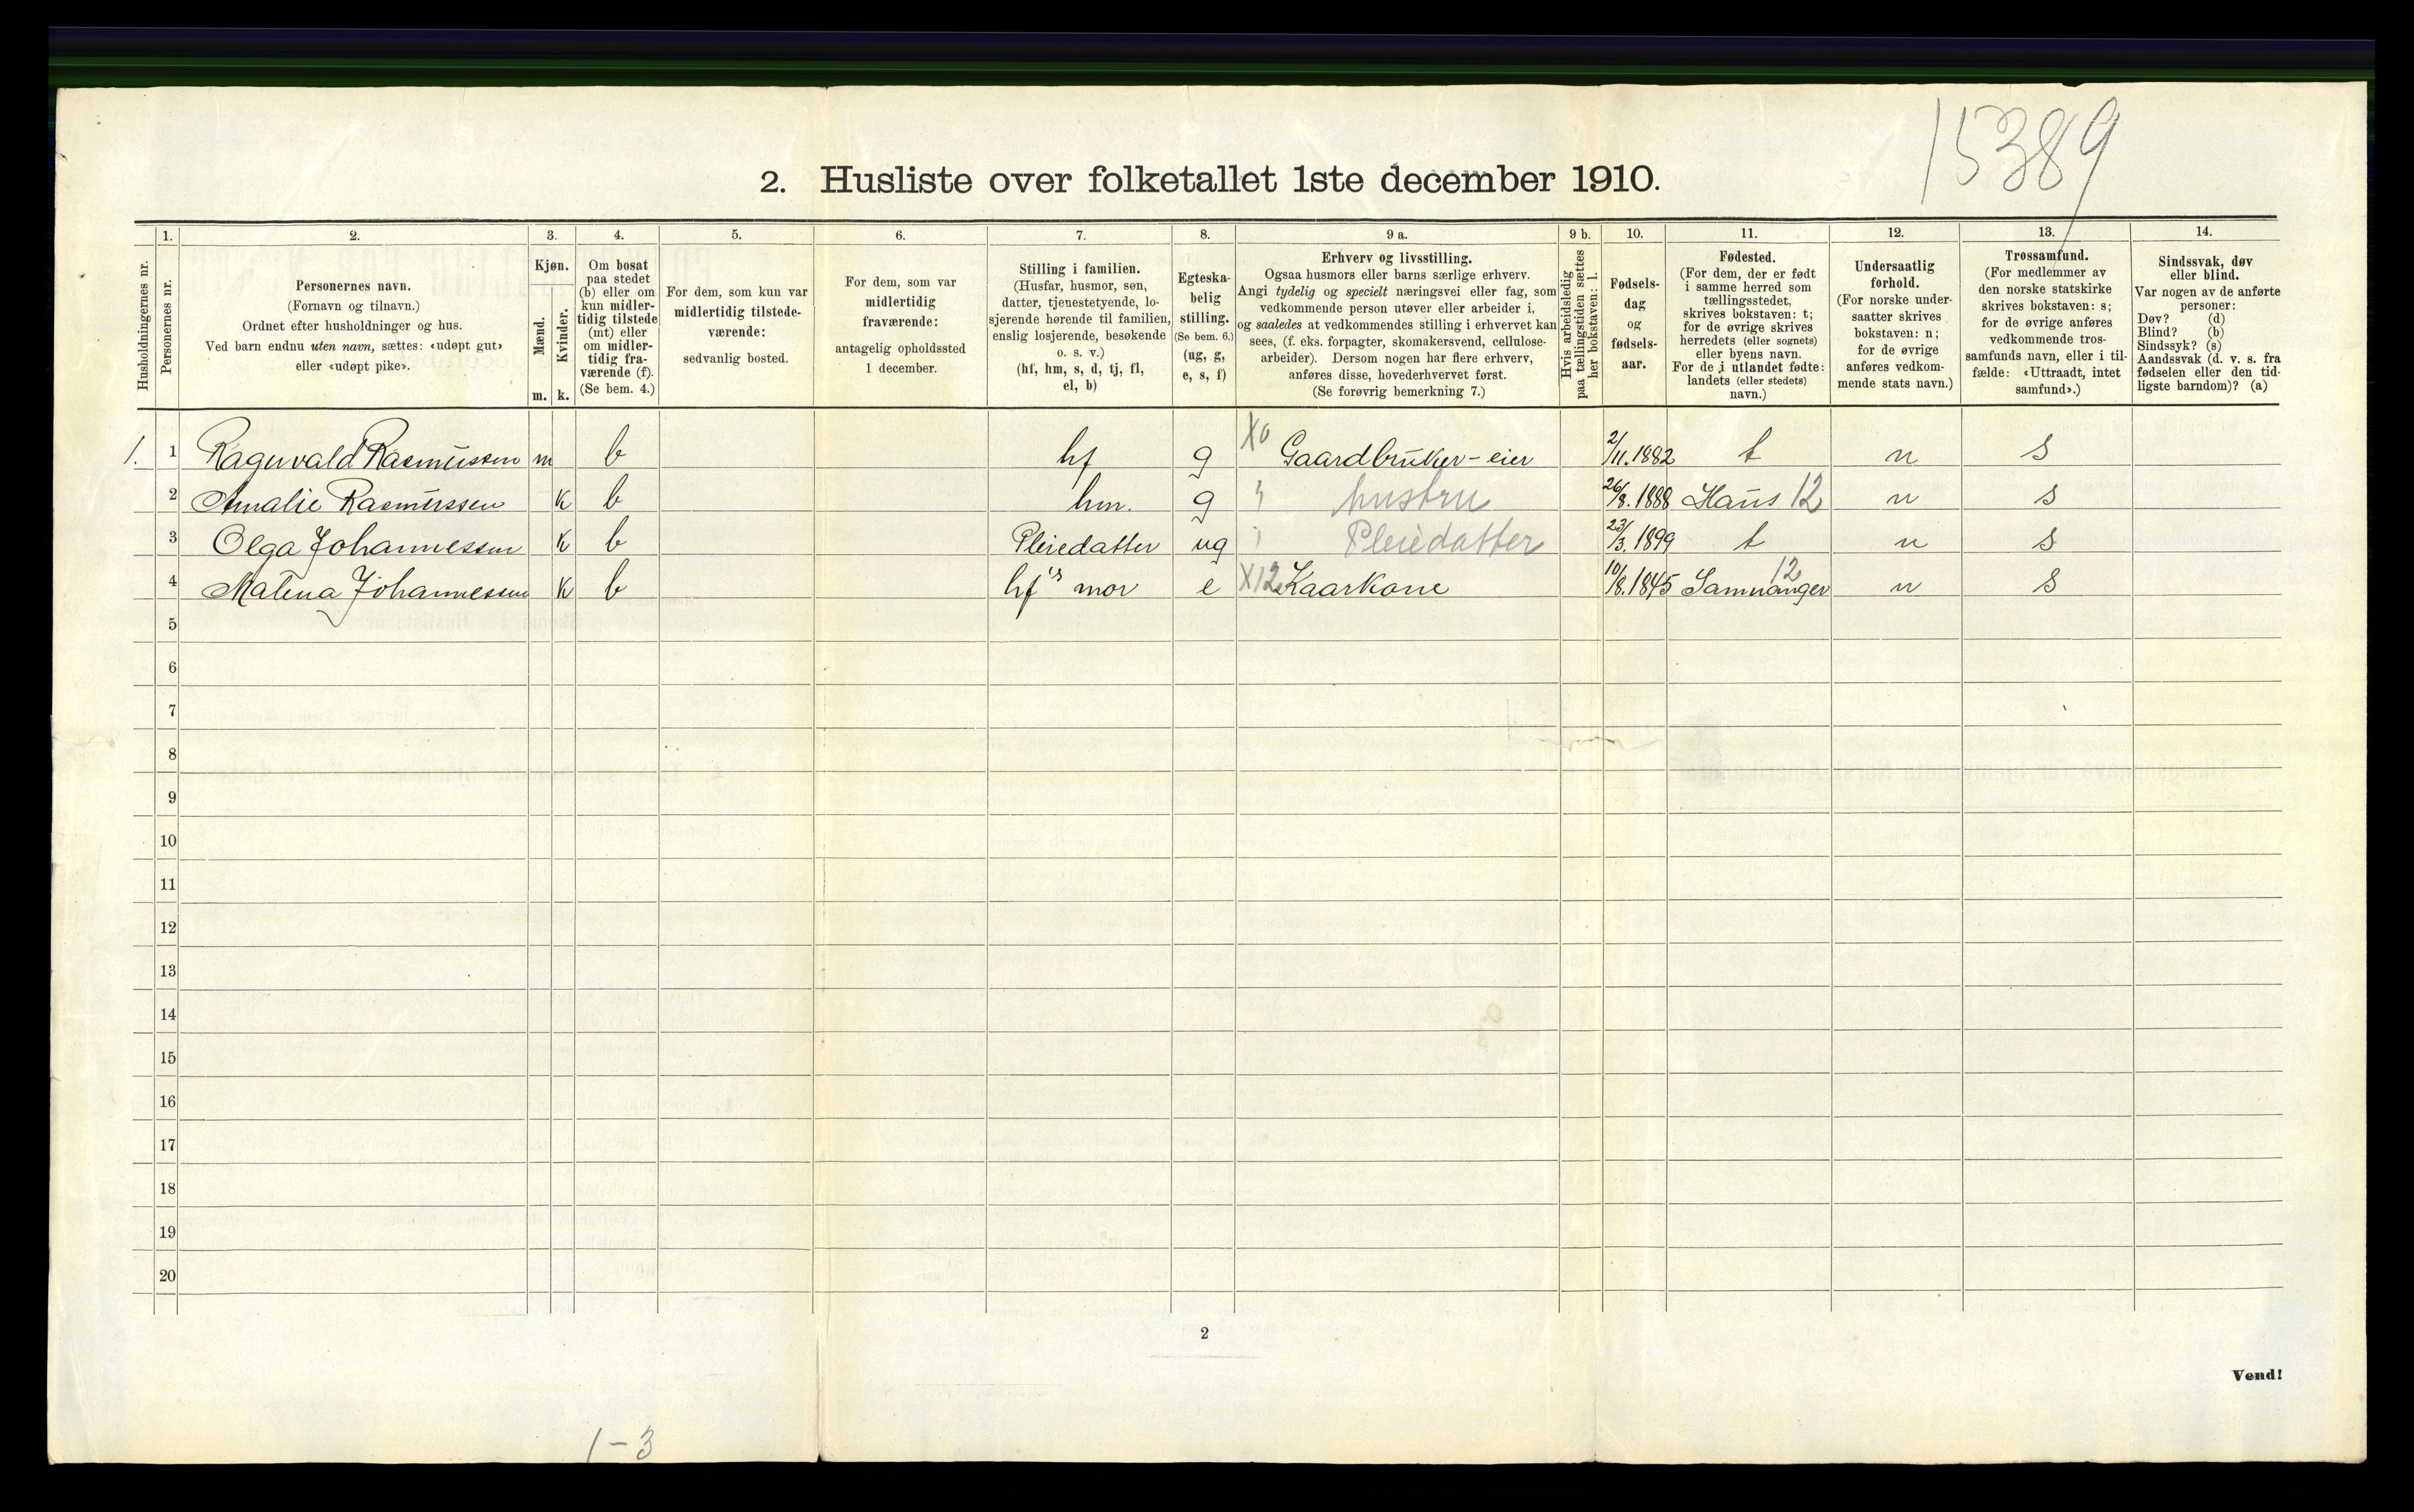 15389
2. Husliste over folketallet 1ste december 1910.
1. 2. 3. 4. 5. 6. 7. 8. 9 a. 9 b. 10. 11. 12. 13. 14.
Husholdningernes nr.
Personernes nr.
Personernes navn.
(Fornavn og tilnavn.)
Ordnet efter husholdninger og hus.
Ved barn endnu uten navn, sættes: «udøpt gut»
eller «udøpt pike».
Kjøn.
Mænd.
Kvinder.
m. k.
Om bosat
paa stedet
(b) eller om
kun midler-
tidig tilstede
(mt) eller
om midler-
tidig fra-
værende (f).
(Se bem. 4.)
For dem, som kun var
midlertidig tilstede-
værende:
sedvanlig bosted.
For dem, som var
midlertidig
fraværende:
antagelig opholdssted
1 december.
Stilling i familien.
(Husfar, husmor, søn,
datter, tjenestetyende, lo-
sjerende hørende til familien,
enslig losjerende, besøkende
o. s. v.)
(hf, hm, s, d, tj, fl,
el, b)
Egteska-
belig
stilling.
(Se bem. 6.)
(ug, g,
e, s, f)
Erhverv og livsstilling.
Ogsaa husmors eller barns særlige erhverv.
Angi tydelig og specielt næringsvei eller fag, som
vedkommende person utøver eller arbeider i,
og saaledes at vedkommendes stilling i erhvervet kan
sees, (f. eks. forpagter, skomakersvend, cellulose-
arbeider). Dersom nogen har flere erhverv,
anføres disse, hovederhvervet først.
(Se forøvrig bemerkning 7.)
Hvis arbeidsledig
paa tællingstiden sættes
her bokstaven: l.
Fødsels-
dag
og
fødsels-
aar.
Fødested.
(For dem, der er født
i samme herred som
tællingsstedet,
skrives bokstaven: t;
for de øvrige skrives
herredets (eller sognets)
eller byens navn.
For de i utlandet fødte:
landets (eller stedets)
navn.)
Undersaatlig
forhold.
(For norske under-
saatter skrives
bokstaven: n;
for de øvrige
anføres vedkom-
mende stats navn.)
Trossamfund.
(For medlemmer av
den norske statskirke
skrives bokstaven: s;
for de øvrige anføres
vedkommende tros-
samfunds navn, eller i til-
fælde: «Uttraadt, intet
samfund».)
Sindssvak, døv
eller blind.
Var nogen av de anførte
personer:
Døv? (d)
Blind? (b)
Sindssyk? (s)
Aandssvak (d. v. s. fra
fødselen eller den tid-
ligste barndom)? (a)
1. 1 Ragnvald Rasmussen m b hf g X0 Gaardbruker-eier 2/11.1882 t n s
2 Amalie Rasmussen k b hm. g " hustru 26/8.1888 Haus 12 n s
3 Olga Johannessen k b Pleiedatter ug " Pleiedatter 23/3.1899 t n s
4 Malena Johannessen k b hf's mor e X12 Kaarkone 10/8.1845 Samnanger 12 n s
5
6
7
8
9
10
11
12
13
14
15
16
17
18
19
20
2
Vend!
1-3